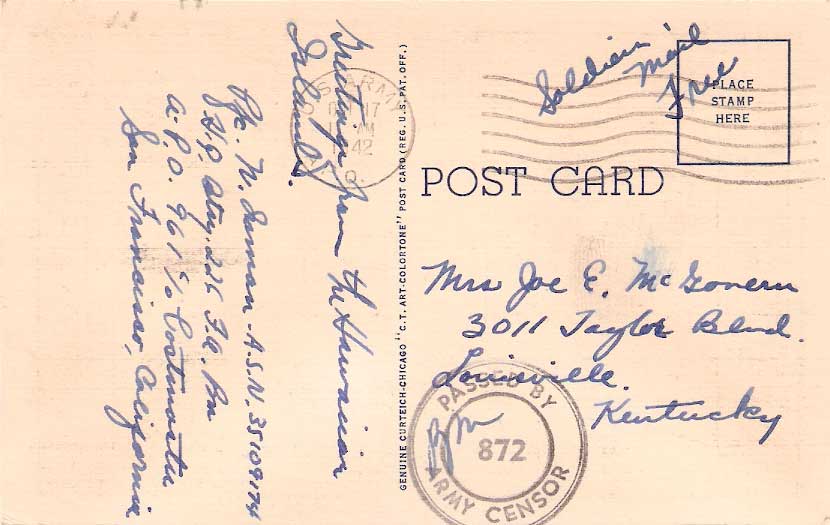 Greetings from the Hawaiian
Islands.
Pfc. N. A.S.N. 35109174
Hq. Btry. 225 F.A. Bn
A.P.O. 961 % Postmaster
San Francisco, California
U.S. ARMY
17
AM
1942
A.P.O.
GENUINE CURTEICH-CHICAGO "C.T. ART-COLORTONE" POST CARD (REG. U.S. PAT. OFF.)
Soldiers Mail
Free
PLACE
STAMP
HERE
POST CARD
Mrs Joe E. McGovern
3011 Taylor Blvd.
Louisville.
Kentucky
PASSED BY
872
ARMY CENSOR